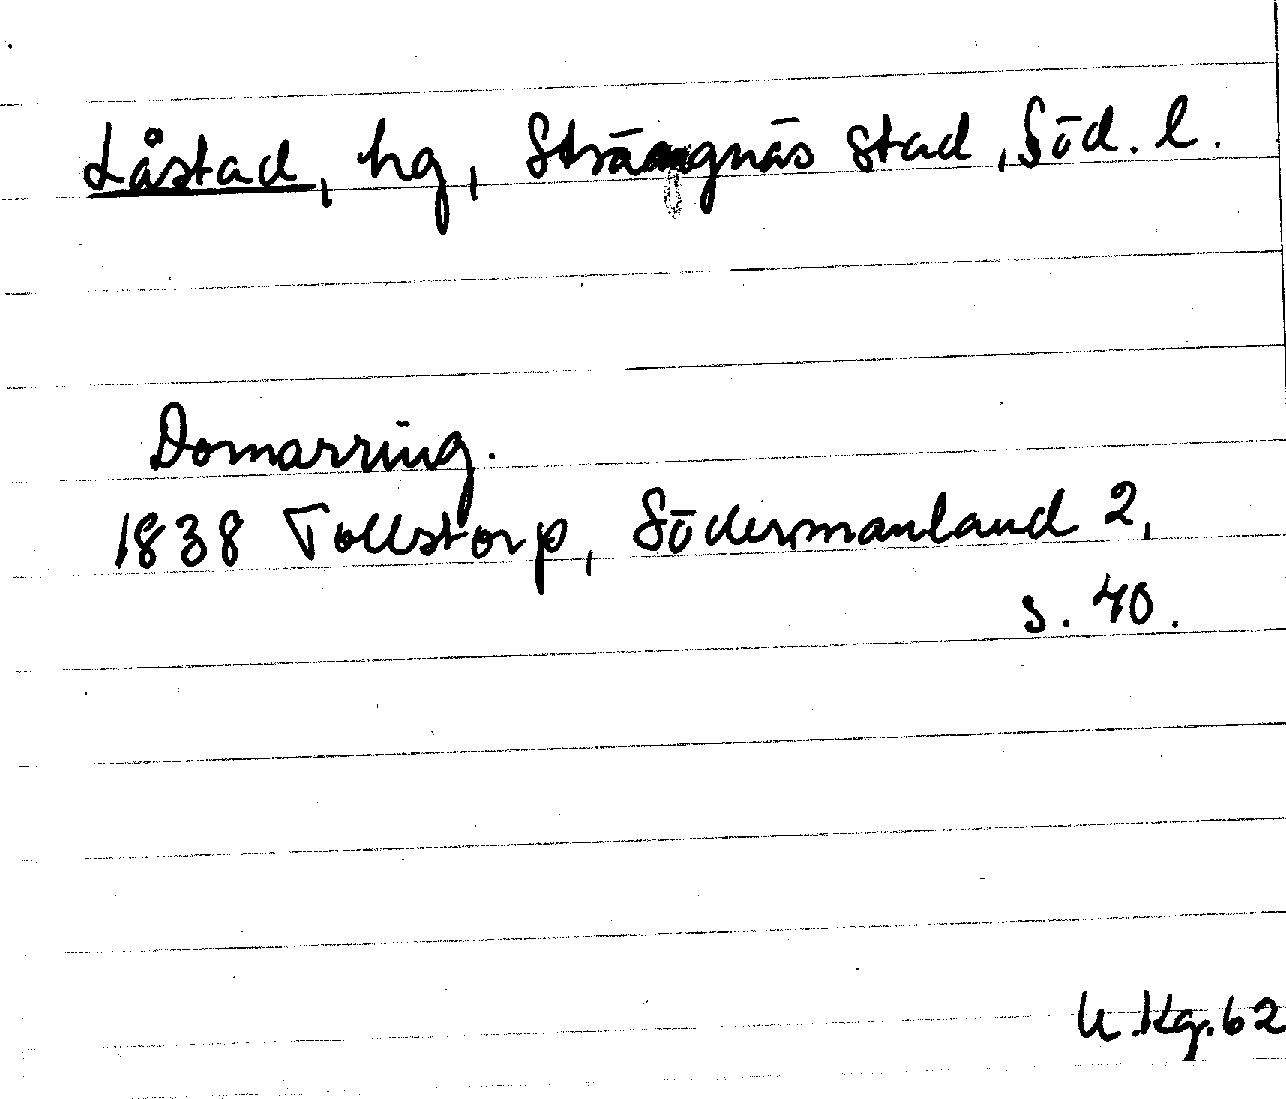 Låstad, hg, Strängnäs stad, Söd. l.
Domarring.
1838 Tollstorp, Södermanland 2,
s. 40.
U.Kg.62